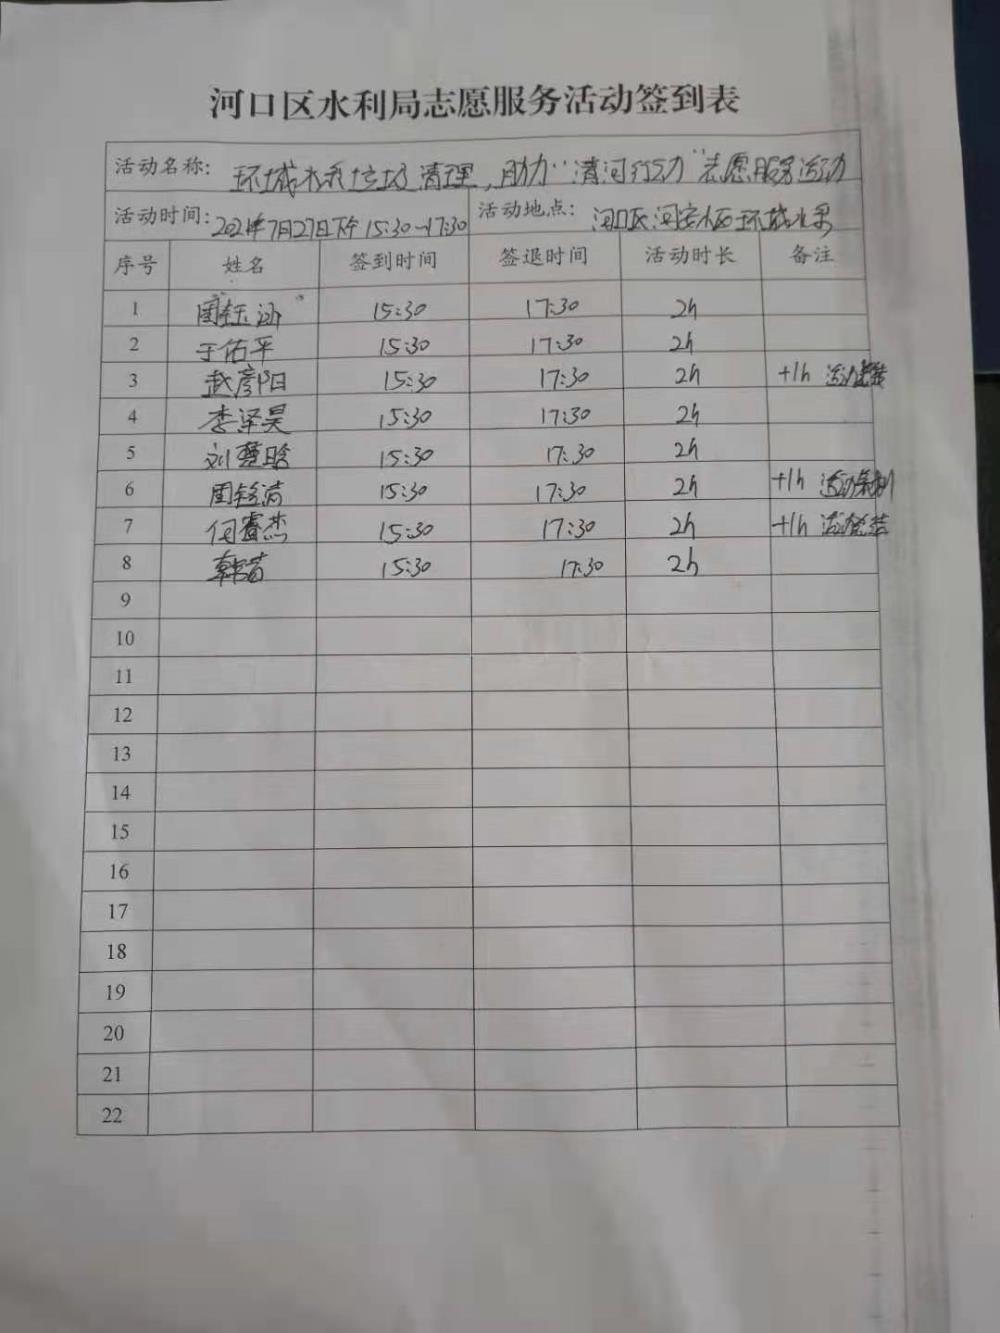 河口区水利局志愿服务活动签到表
活动名称: 环城水系垃圾清理，助力“清河行动”志愿服务活动
活动时间: 2021年7月27日下午15:30-17:30 活动地点: 河口区河安小区环城水系
序号 姓名 签到时间 签退时间 活动时长 备注
1 周钰涵 15:30 17:30 2h
2 于佑平 15:30 17:30 2h
3 赵彦阳 15:30 17:30 2h +1h 活动
4 李泽昊 15:30 17:30 2h
5 刘 晗 15:30 17:30 2h
6 周 15:30 17:30 2h +1h 活动策划
7 何睿杰 15:30 17:30 2h +1h 活动总结
8 韩 15:30 17:30 2h
9
10
11
12
13
14
15
16
17
18
19
20
21
22